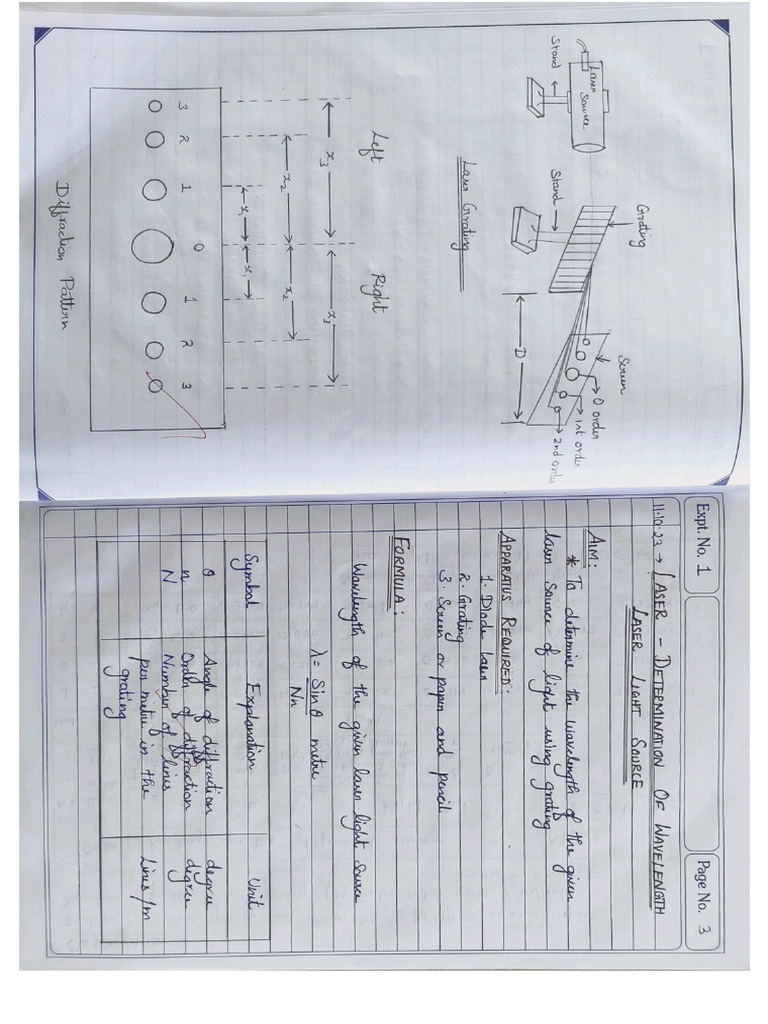 Laser
Source
Stand
Stand
Grating
Screen
0 order
1st order
2nd order
D
Laser Grating
Left
Right
x3
x3
x2
x2
x1
x1
3
2
1
0
1
2
3
Diffraction Pattern
Expt. No. 1
Page No. 3
11.10.23 → LASER - DETERMINATION OF WAVELENGTH
LASER LIGHT SOURCE
AIM:
* To determine the wavelength of the given
laser source of light using grating
APPARATUS REQUIRED:
1. Diode laser
2. Grating
3. Screen or paper and pencil
FORMULA:
Wavelength of the given laser light source
λ = Sin θ metre
Nn
Symbol Explanation Unit
θ Angle of diffraction degree
n Order of diffraction degree
N Number of lines
per metre in the Lines/m
grating